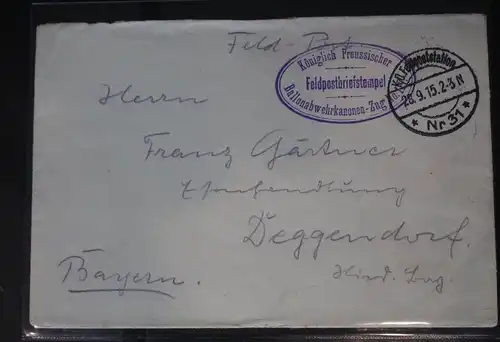 Feld-Post
Königlich Preussischer
Feldpostbriefstempel
Ballonabwehrkanonen-Zug
28.9.15.2-3N
* Nr 31 *
Herrn
Franz Gärtner
Deggendorf.
Bayern.